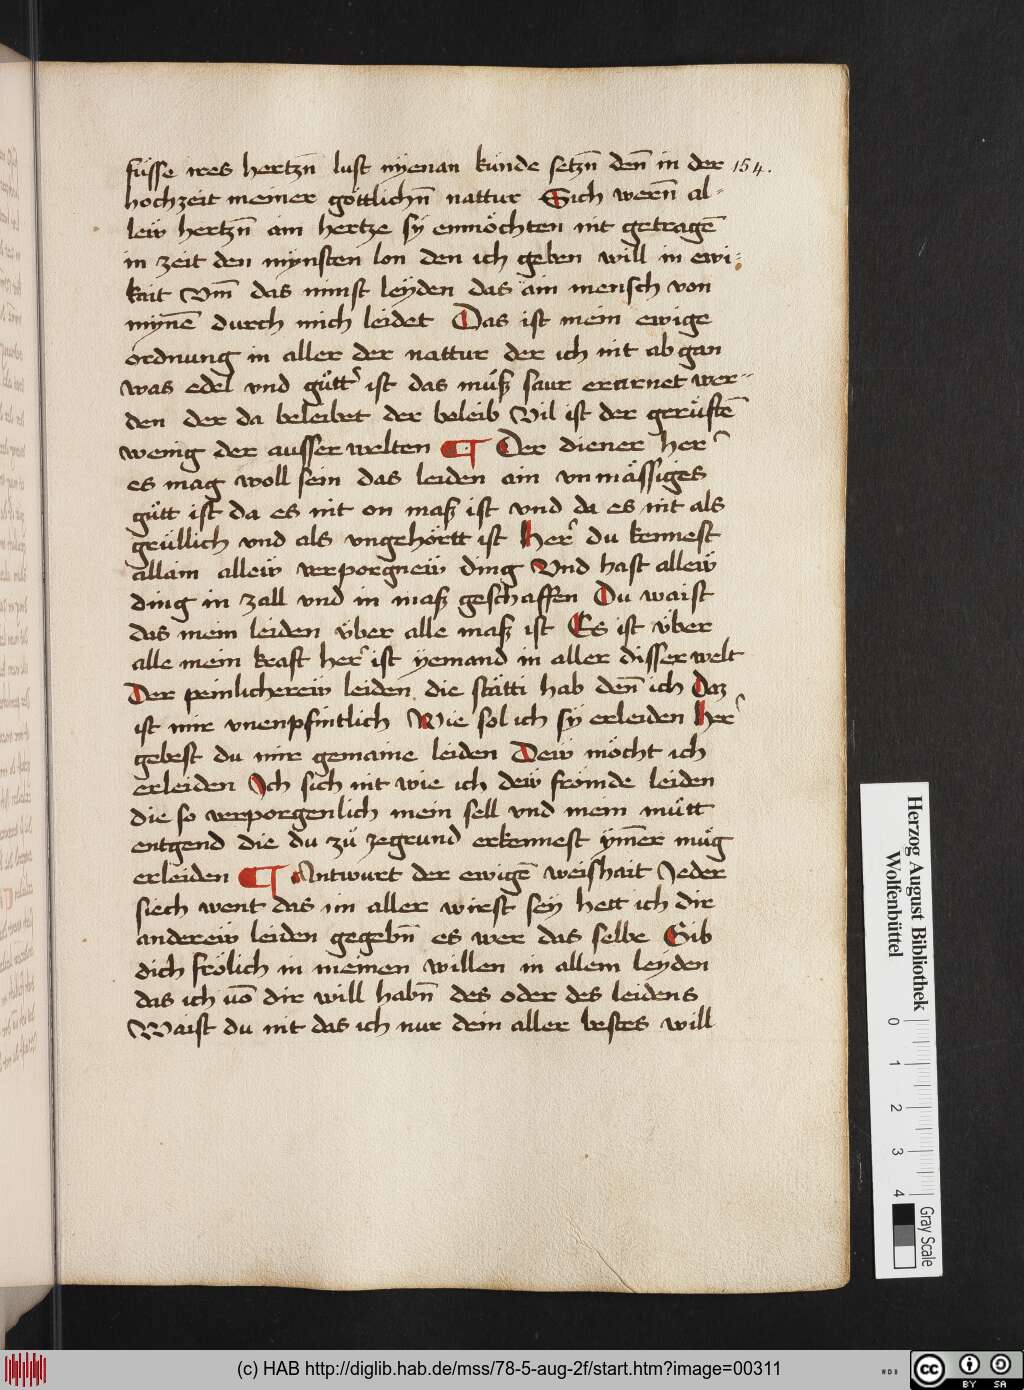 füsse ires hertzn̄ lust nÿenan kúnde setzn̄ den̄ in der 154.
hochzeit meiner göttlichn̄ nattur Sich wern̄ al-
lew̎ hertzn̄ ain hertze sÿ enmöchten nit getragē
in zeit den mÿnsten lon den ich geben will in ewi-
kait Vm̄ das minst leÿden das ain mensch von
mÿnē durch mich leidet Das ist mein ewige
ordnung in aller der nattur der ich nit ab gan
was edel vnd gůtt' ist das můß saur erarnet wer-
den der da beleibet der beleib Vil ist der gerůftē
wenig der ausser welten ¶ Der diener her'
es mag woll sein das leiden ain vnmässiges
gůtt ist da es nit on maß ist vnd da es nit als
grüllich vnd als vngehörtt ist her' du kennest
allain allew̎ verporgnew̎ ding Vnd hast allew̎
ding in zall vnd in maß geschaffen Du waist
das mein leiden über alle maß ist Es ist über
alle mein kraft her' ist ÿemand in aller disser welt
Der peinlicherew̎ leiden die stätti hab den̄ ich Daz
ist mir vnenpfintlich Wie sol ich sÿ erleiden her'
gebest du mir gemaine leiden Dew̎ möcht ich
erleiden Ich sich nit wie ich dew̎ frömde leiden
die so verporgenlich mein sell vnd mein můtt
entgend die du zů zegrund erkennest ÿm̄er müg
erleiden ¶ Antwurt der ewigē weishait Jeder
siech went das im aller wirst seÿ hett ich dir
anderew̎ leiden gegebn̄ es wer das selbe Gib
dich frölich in meinen willen in allem leÿden
das ich uō dir will habn̄ des oder des leidens
Waist du nit das ich nur dein aller bestes will
Herzog August Bibliothek
Wolfenbüttel
0 1 2 3 4
Gray Scale
(c) HAB http://diglib.hab.de/mss/78-5-aug-2f/start.htm?image=00311
cc BY SA